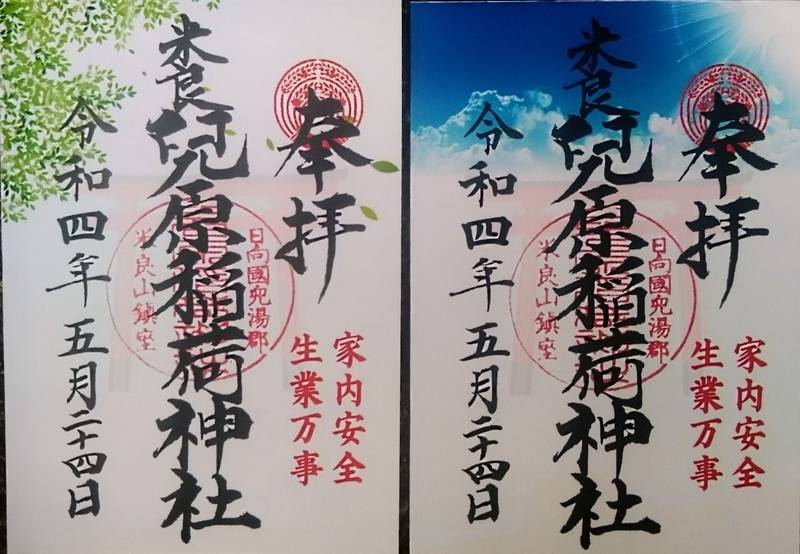 奉拝
家内安全
生業万事
日向國兒湯郡
米良山鎮座
米良兒原稲荷神社
令和四年五月二十四日
奉拝
家内安全
生業万事
日向國兒湯郡
米良山鎮座
米良兒原稲荷神社
令和四年五月二十四日